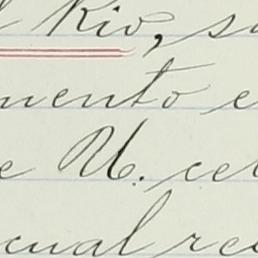 l Rio, s
mento e
e U. cel
cual re